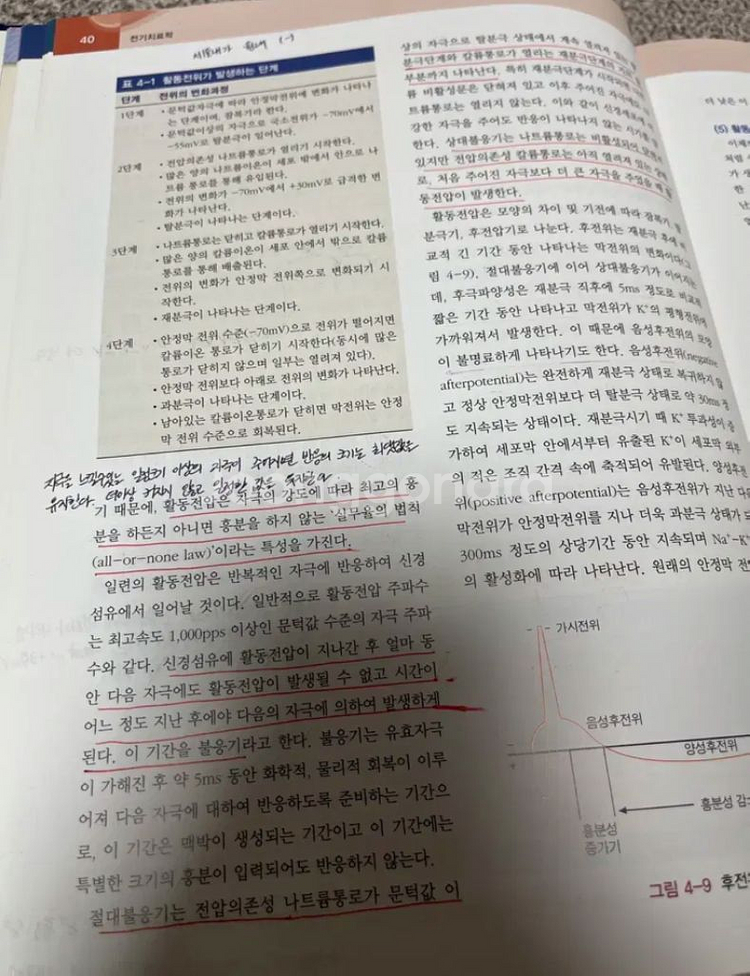 40
전기치료학
표 4-1 활동전위가 발생하는 단계
단계 전위의 변화과정
1단계 • 문턱값자극에 따라 안정막전위에 변화가 나타나
는 단계이며, 잠복기라 한다.
• 문턱값이상의 자극으로 국소전위가 -70mV에서
-55mV로 탈분극이 일어난다.
2단계 • 전압의존성 나트륨통로가 열리기 시작한다.
• 많은 양의 나트륨이온이 세포 밖에서 안으로 나
트륨 통로를 통해 유입된다.
• 전위의 변화가 -70mV에서 +30mV로 급격한 변
화가 나타난다.
• 탈분극이 나타나는 단계이다.
3단계 • 나트륨통로는 닫히고 칼륨통로가 열리기 시작한다.
• 많은 양의 칼륨이온이 세포 안에서 밖으로 칼륨
통로를 통해 배출된다.
• 전위의 변화가 안정막 전위쪽으로 변화되기 시
작한다.
• 재분극이 나타나는 단계이다.
4단계 • 안정막 전위 수준(-70mV)으로 전위가 떨어지면
칼륨이온 통로가 닫히기 시작한다(동시에 많은
통로가 닫히지 않으며 일부는 열려져 있다).
• 안정막 전위보다 아래로 전위의 변화가 나타난다.
• 과분극이 나타나는 단계이다.
• 남아있는 칼륨이온통로가 닫히면 막전위는 안정
막 전위 수준으로 회복된다.
기 때문에, 활동전압은 자극의 강도에 따라 최고의 흥
분을 하든지 아니면 흥분을 하지 않는 '실무율의 법칙
(all-or-none law)'이라는 특성을 가진다.
일련의 활동전압은 반복적인 자극에 반응하여 신경
섬유에서 일어날 것이다. 일반적으로 활동전압 주파수
는 최고속도 1,000pps 이상인 문턱값 수준의 자극 주파
수와 같다. 신경섬유에 활동전압이 지나간 후 얼마 동
안 다음 자극에도 활동전압이 발생될 수 없고 시간이
어느 정도 지난 후에야 다음의 자극에 의하여 발생하게
된다. 이 기간을 불응기라고 한다. 불응기는 유효자극
이 가해진 후 약 5ms 동안 화학적, 물리적 회복이 이루
어져 다음 자극에 대하여 반응하도록 준비하는 기간으
로, 이 기간은 맥박이 생성되는 기간이고 이 기간에는
특별한 크기의 흥분이 입력되어도 반응하지 않는다.
절대불응기는 전압의존성 나트륨통로가 문턱값 이
상의 자극으로 탈분극 상태에서 계속 열려져 있는
분극단계와 칼륨통로가 열리는 재분극단계의
부분까지 나타난다. 특히 재분극단계가 시작되면
륨 비활성문은 닫혀져 있고 이후 주어진 자극에도
트륨통로는 열리지 않는다. 이와 같이 신경세포에
강한 자극을 주어도 반응이 나타나지 않는 시기를
한다. 상대불응기는 나트륨통로는 비활성되어
있지만 전압의존성 칼륨통로는 아직 열려져 있는
로, 처음 주어진 자극보다 더 큰 자극을 주었을 때
동전압이 발생한다.
활동전압은 모양의 차이 및 기전에 따라 잠복기, 탈
분극기, 후전압기로 나눈다. 후전위는 재분극 후에
교적 긴 기간 동안 나타나는 막전위의 변화이다(그
림 4-9). 절대불응기에 이어 상대불응기가 이어지는
데, 후극파양성은 재분극 직후에 5ms 정도로 비교적
짧은 기간 동안 나타나고 막전위가 K⁺의 평형전위에
가까워져서 발생한다. 이 때문에 음성후전위의 모양
이 불명료하게 나타나기도 한다. 음성후전위(negative
afterpotential)는 완전하게 재분극 상태로 복귀하지 않
고 정상 안정막전위보다 더 탈분극 상태로 약 30ms 정
도 지속되는 상태이다. 재분극시기 때 K⁺ 투과성이 증
가하여 세포막 안에서부터 유출된 K⁺이 세포막 외부
의 적은 조직 간격 속에 축적되어 유발된다. 양성후전
위(positive afterpotential)는 음성후전위가 지난 다
막전위가 안정막전위를 지나 더욱 과분극 상태가
300ms 정도의 상당기간 동안 지속되며 Na⁺-K⁺
의 활성화에 따라 나타난다. 원래의 안정막 전
가시전위
음성후전위
양성후전위
흥분성
증가기
흥분성 감소
그림 4-9 후전위
더 낮은
(5) 활동